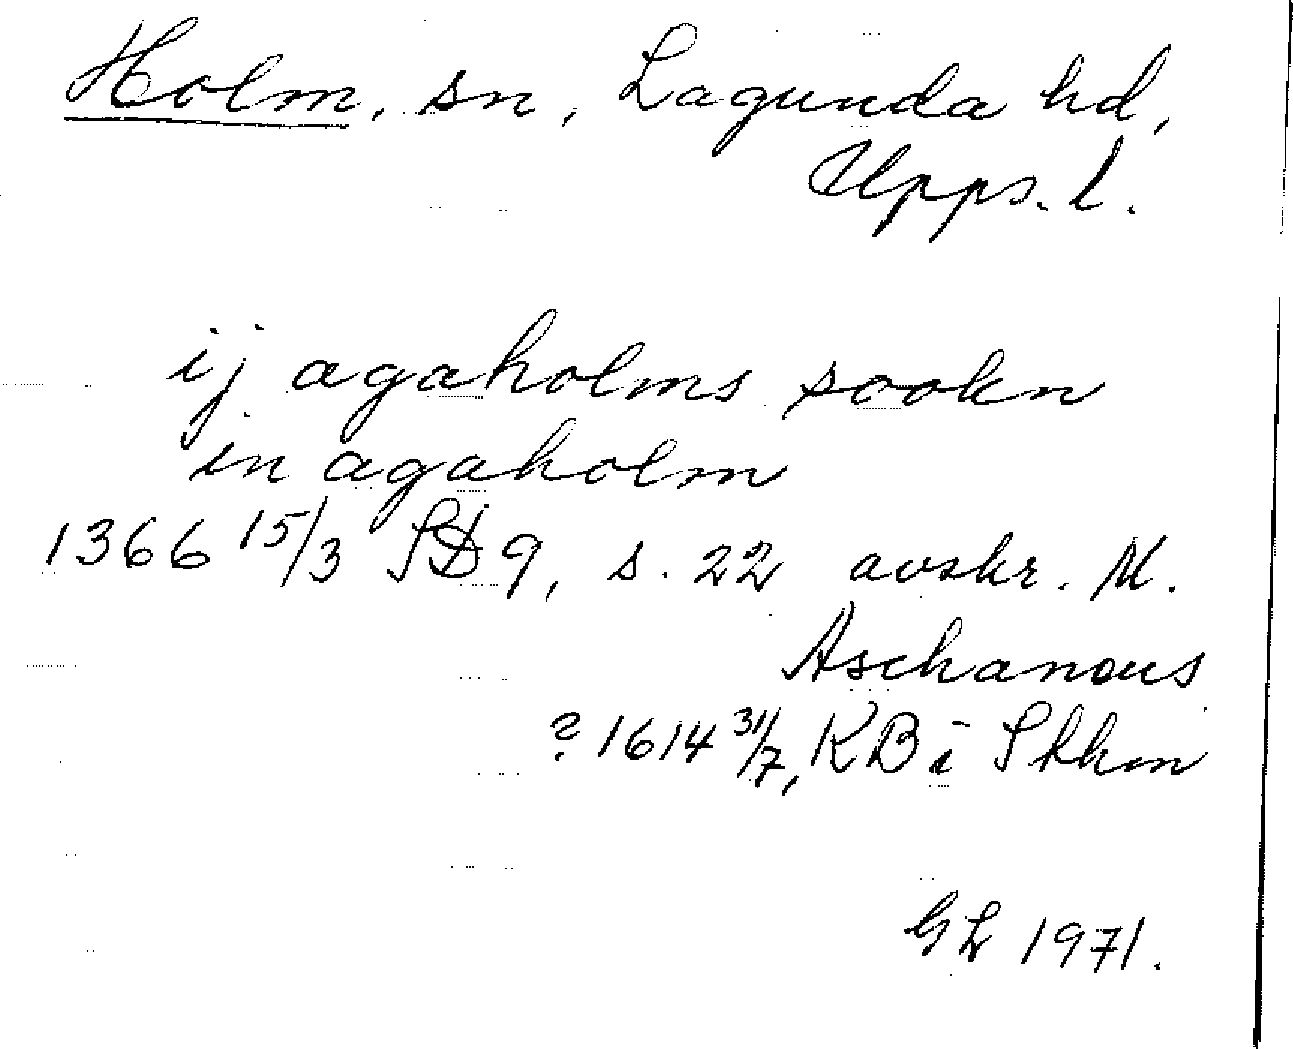 Holm, sn, Lagunda hd,
Upps. l.
ij agaholms sookn
in agaholm
1366 15/3 SD 9, s. 22 avskr. M.
Aschaneus
? 1614 31/7, KB i Sthlm
GL 1971.